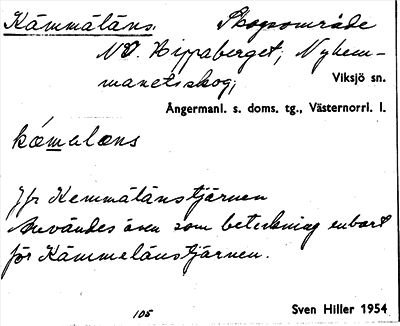 Kämmäläns. Skogsområde
NV. Hippaberget, Nyhem-
manetsskog;
Viksjö sn.
Ångermanl. s. doms. tg., Västernorrl. l.
kámalæns
Jfr Kemmälänstjärnen
Användes även som beteckning enbart
för Kämmelänstjärnen.
105
Sven Hiller 1954